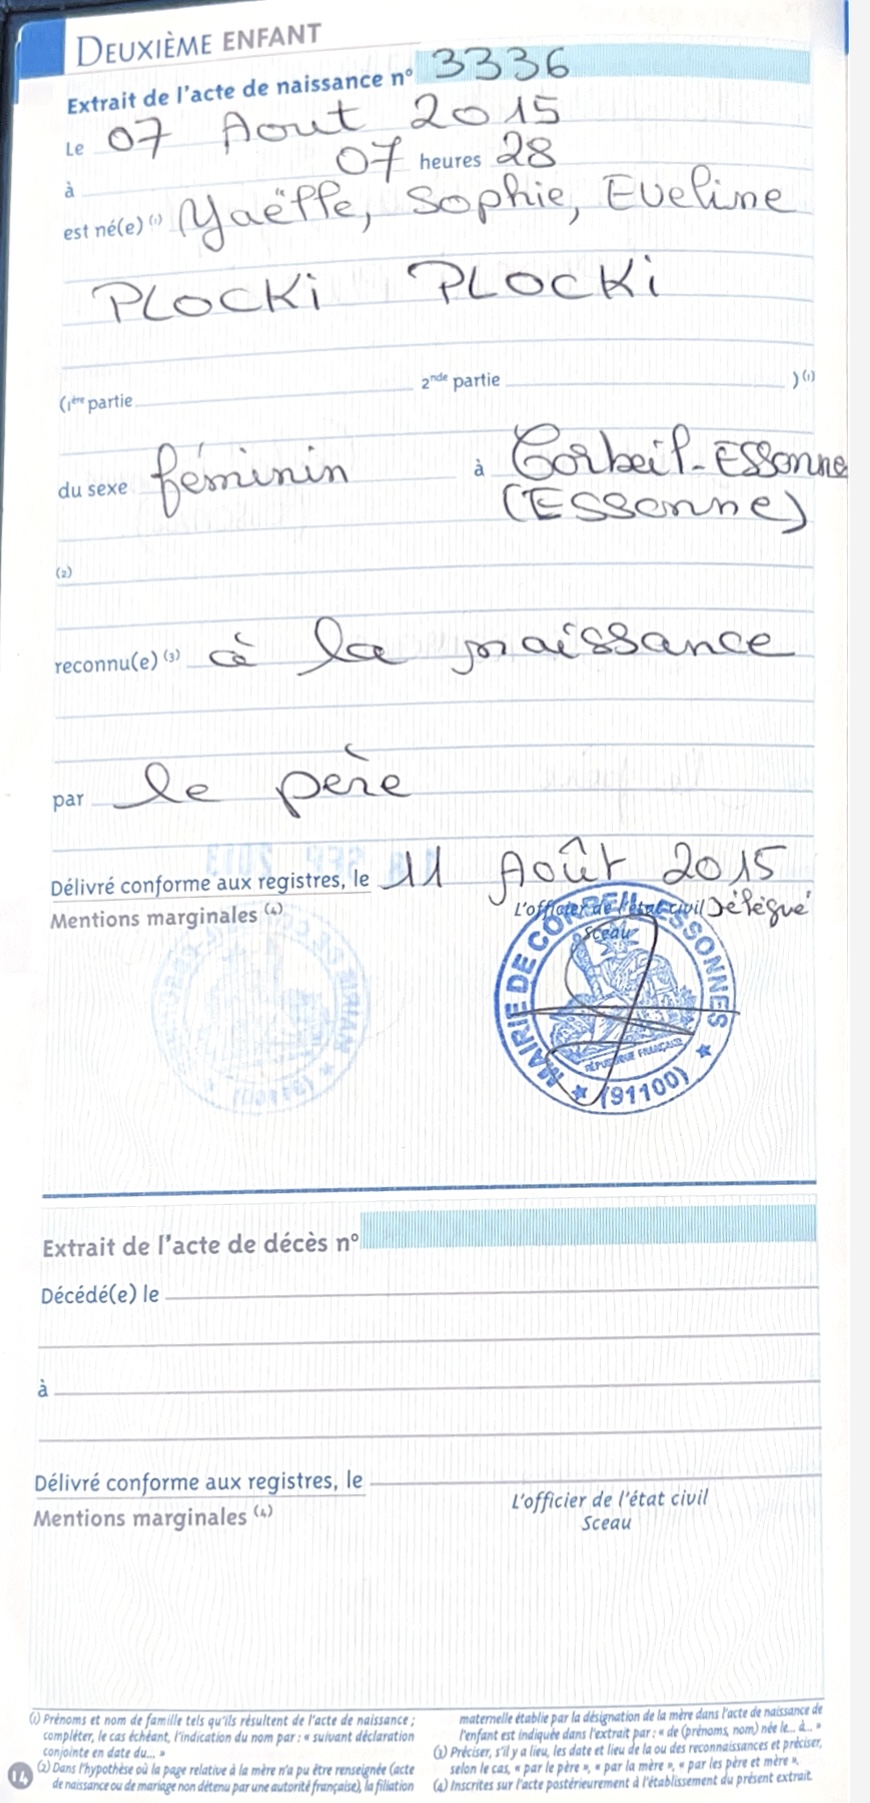 DEUXIÈME ENFANT
Extrait de l'acte de naissance n° 3336
Le 07 Aout 2015
à 07 heures 28
est né(e) (1) Yaëlle, Sophie, Eveline
PLOCKi PLOCKi
(1ère partie 2nde partie ) (1)
du sexe féminin à Corbeil-Essonne
(Essonne)
(2)
reconnu(e) (3) à la naissance
par le père
Délivré conforme aux registres, le 11 Août 2015
Mentions marginales (4) L'officier de l'état civil Délégué
Sceau
MAIRIE DE CORBEIL-ESSONNES
RÉPUBLIQUE FRANÇAISE
(91100)
Extrait de l'acte de décès n°
Décédé(e) le
à
Délivré conforme aux registres, le
Mentions marginales (4) L'officier de l'état civil
Sceau
(1) Prénoms et nom de famille tels qu'ils résultent de l'acte de naissance ;
compléter, le cas échéant, l'indication du nom par : « suivant déclaration
conjointe en date du... »
(2) Dans l'hypothèse où la page relative à la mère n'a pu être renseignée (acte
de naissance ou de mariage non détenu par une autorité française), la filiation
maternelle établie par la désignation de la mère dans l'acte de naissance de
l'enfant est indiquée dans l'extrait par : « de (prénoms, nom) née le... à... »
(3) Préciser, s'il y a lieu, les date et lieu de la ou des reconnaissances et préciser,
selon le cas, « par le père », « par la mère », « par les père et mère ».
(4) Inscrites sur l'acte postérieurement à l'établissement du présent extrait.
14